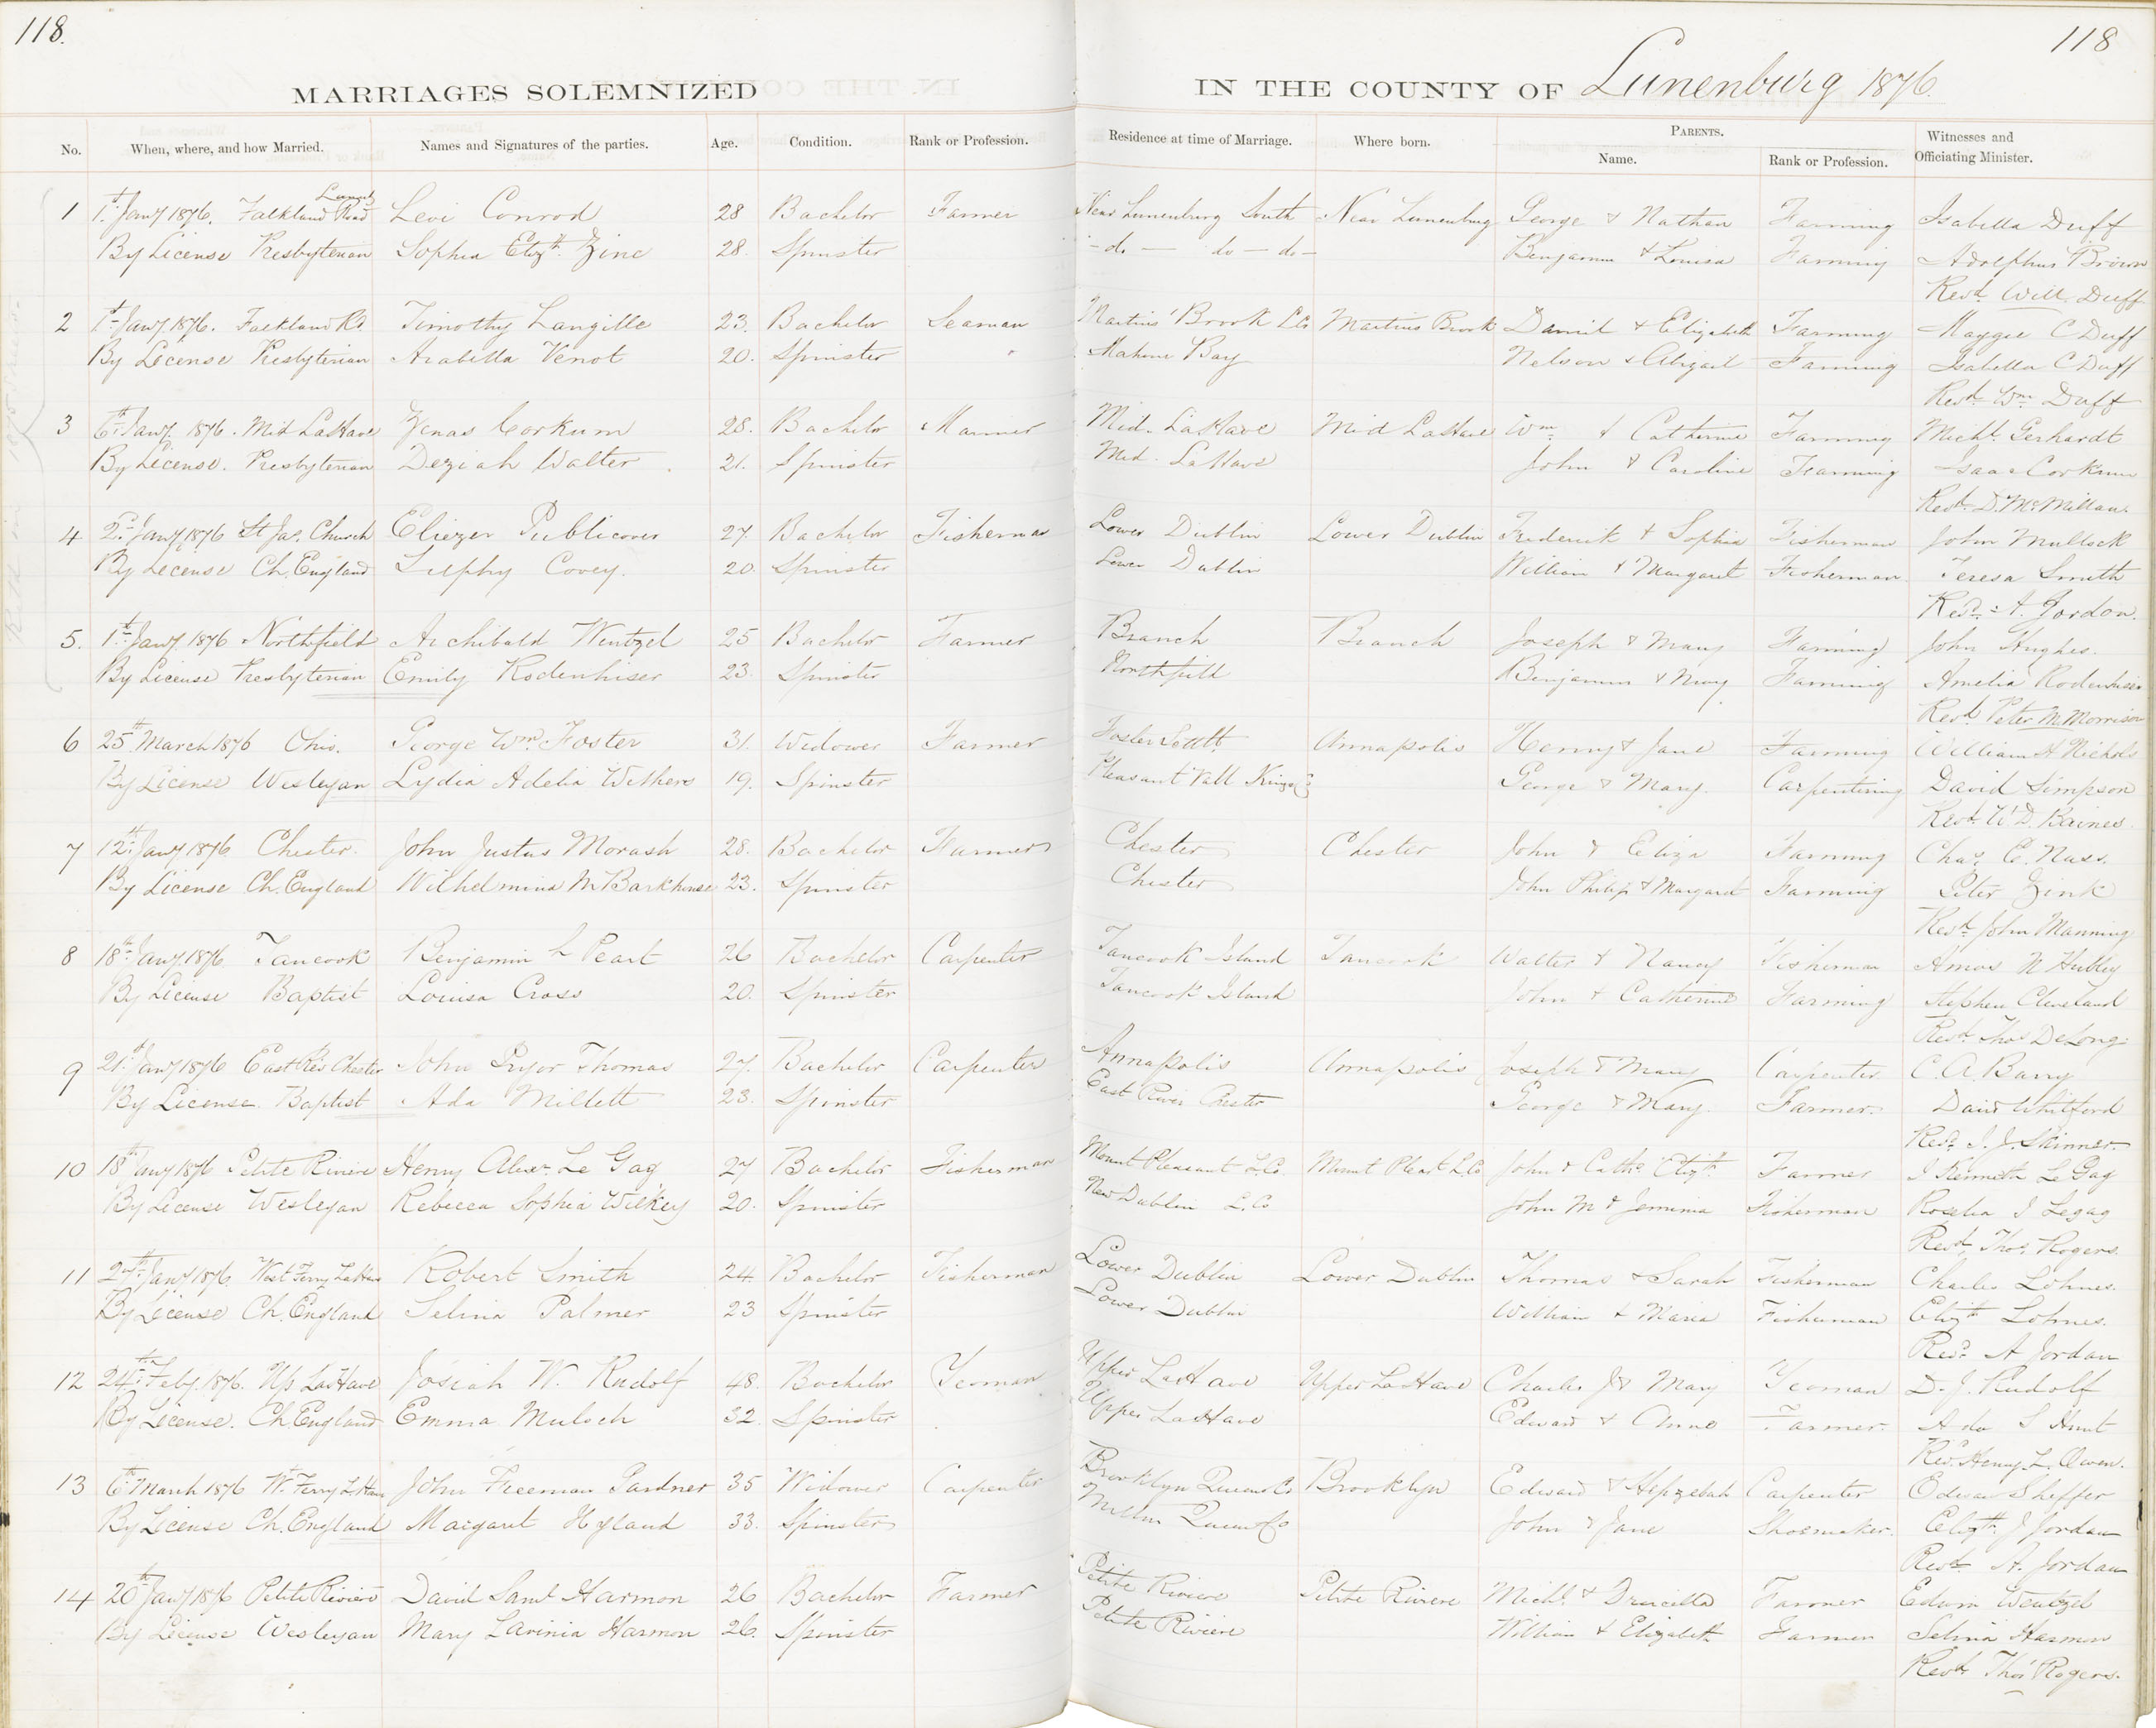 118.
118
MARRIAGES SOLEMNIZED IN THE COUNTY OF Lunenburg 1876.
No. When, where, and how Married. Names and Signatures of the parties. Age. Condition. Rank or Profession. Residence at time of Marriage. Where born. PARENTS. Name. Rank or Profession. Witnesses and Officiating Minister.
1 1st Jany 1876. Falkland Road Levi Conrod 28 Bachelor Farmer Near Lunenburg South Near Lunenburg George & Nathan Farming Isabella Duff
By License Presbyterian Sophia Elizth. Zinc 28. Spinster - do - do - do - Benjamin & Louisa Farming Adolphus Brown
Revd. Will. Duff
2 1st Jany 1876. Falkland Rd. Timothy Langille 23. Bachelor Seaman Martins' Brook LCo Martins Brook Daniel & Elizabeth Farming Maggie C Duff
By License Presbyterian Arabella Venot 20. Spinster Mahone Bay Nelson & Abigail Farming Isabella C Duff
Revd. Wm. Duff
3 6th Jany. 1876. Mid LaHave Zenas Corkum 28. Bachelor Mariner Mid. LaHave Mid LaHave Wm. & Catherine Farming Michl. Gerhardt
By License. Presbyterian Deziah Walter. 21. Spinster Mid. LaHave John & Caroline Farming Isaac Corkum
Revd. D. McMillan.
4 2nd Jany 1876 St Jas. Church Eliezer Publicover 27. Bachelor Fisherman Lower Dublin Lower Dublin Frederick & Sophia Fisherman John Mullock
By License Ch. England Covey. 20. Spinster Lower Dublin William & Margaret Fisherman Teresa Smith
Revd. A. Jordan.
5. 1st Jany 1876 Northfield Archibald Wentzel 25 Bachelor Farmer Branch Branch Joseph & Mary Farming John Hughes.
By License Presbyterian Emily Rodenhiser 23. Spinster Northfield Benjamin & Mary Farming Amelia Rodenhiser
Revd. Peter M. Morrison
6 25th March 1876 Ohio. George Wm. Foster 31. Widower Farmer Foster Settt Annapolis Henry & Jane Farming William H Nichols
By License Wesleyan Lydia Adelia Withers 19. Spinster Pleasant Vall Kings Co George & Mary. Carpentering David Simpson
Revd. W D. Baines.
7 12th Jany 1876 Chester. John Justus Morash 28. Bachelor Farmer Chester Chester John & Eliza Farming Chas. E. Nass.
By License Ch. England Wilhelmina M Barkhouse 23. Spinster Chester John Philip & Margaret Farming Peter Zink
Revd. John Manning
8 18th Jany 1876 Tancook Benjamin L Pearl 26 Bachelor Carpenter Tancook Island Tancook Walter & Nancy Fisherman Amos N Hubley
By License Baptist Louisa Cross 20. Spinster Tancook Island John & Catherine Farming Stephen Cleveland
Revd. Thos DeLong.
9 21st Jany 1876 East Riv Chester John Pryor Thomas 27. Bachelor Carpenter Annapolis Annapolis Joseph & Mary Carpenter C. A. Barry
By License. Baptist Ada Millett 23. Spinster East River Chester George & Mary. Farmer. David Whitford
Revd. I. J. Skinner.
10 18th Jany 1876 Petite Riviere Henry Alexr. Le Gag 27 Bachelor Fisherman Mount Pleasant L.Co. Mount Pleast L.Co John & Cathe. Elizth. Farmer J Kenneth LeGag
By License Wesleyan Rebecca Sophia Wilkey 20. Spinster New Dublin L. Co John M & Jemima Fisherman Rosalia J Legag
Revd. Thos. Rogers.
11 27th Jany 1876. West Ferry LaHave Robert Smith 24. Bachelor Fisherman Lower Dublin Lower Dublin Thomas & Sarah Fisherman Charles Lohnes.
By License Ch. England Selina Palmer 23 Spinster Lower Dublin William & Maria Fisherman Elizth Lohnes.
Revd. A Jordan
12 24th Feby. 1876. Up LaHave Josiah W. Rudolf 48. Bachelor Yeoman Upper LaHave Upper LaHave Charles J & Mary Yeoman D. J. Rudolf
By License. Ch. England Emma Muloch 32. Spinster Upper LaHave Edward & Anne Farmer. Ada S Hunt
Revd. Henry L. Owen.
13 6th March 1876 W. Ferry LaHave John Freeman Gardner 35 Widower Carpenter Brooklyn Queens Co Brooklyn Edward & Hepzebah Carpenter Edwar Sheffer
By License Ch. England Margaret Hyland 33. Spinster Milton Queens Co John & Jane Shoemaker. Elizth. J Jordan
Revd. A. Jordan
14 20th Jany 1876 Petite Riviere David Saml Harmon 26 Bachelor Farmer Petite Riviere Petite Riviere Michl. & Drucilla Farmer Edwin Wentzel
By License Wesleyan Mary Lavinia Harmon 26. Spinster Petite Riviere William & Elizabeth Farmer Selina Harmon
Revd. Thos Rogers.